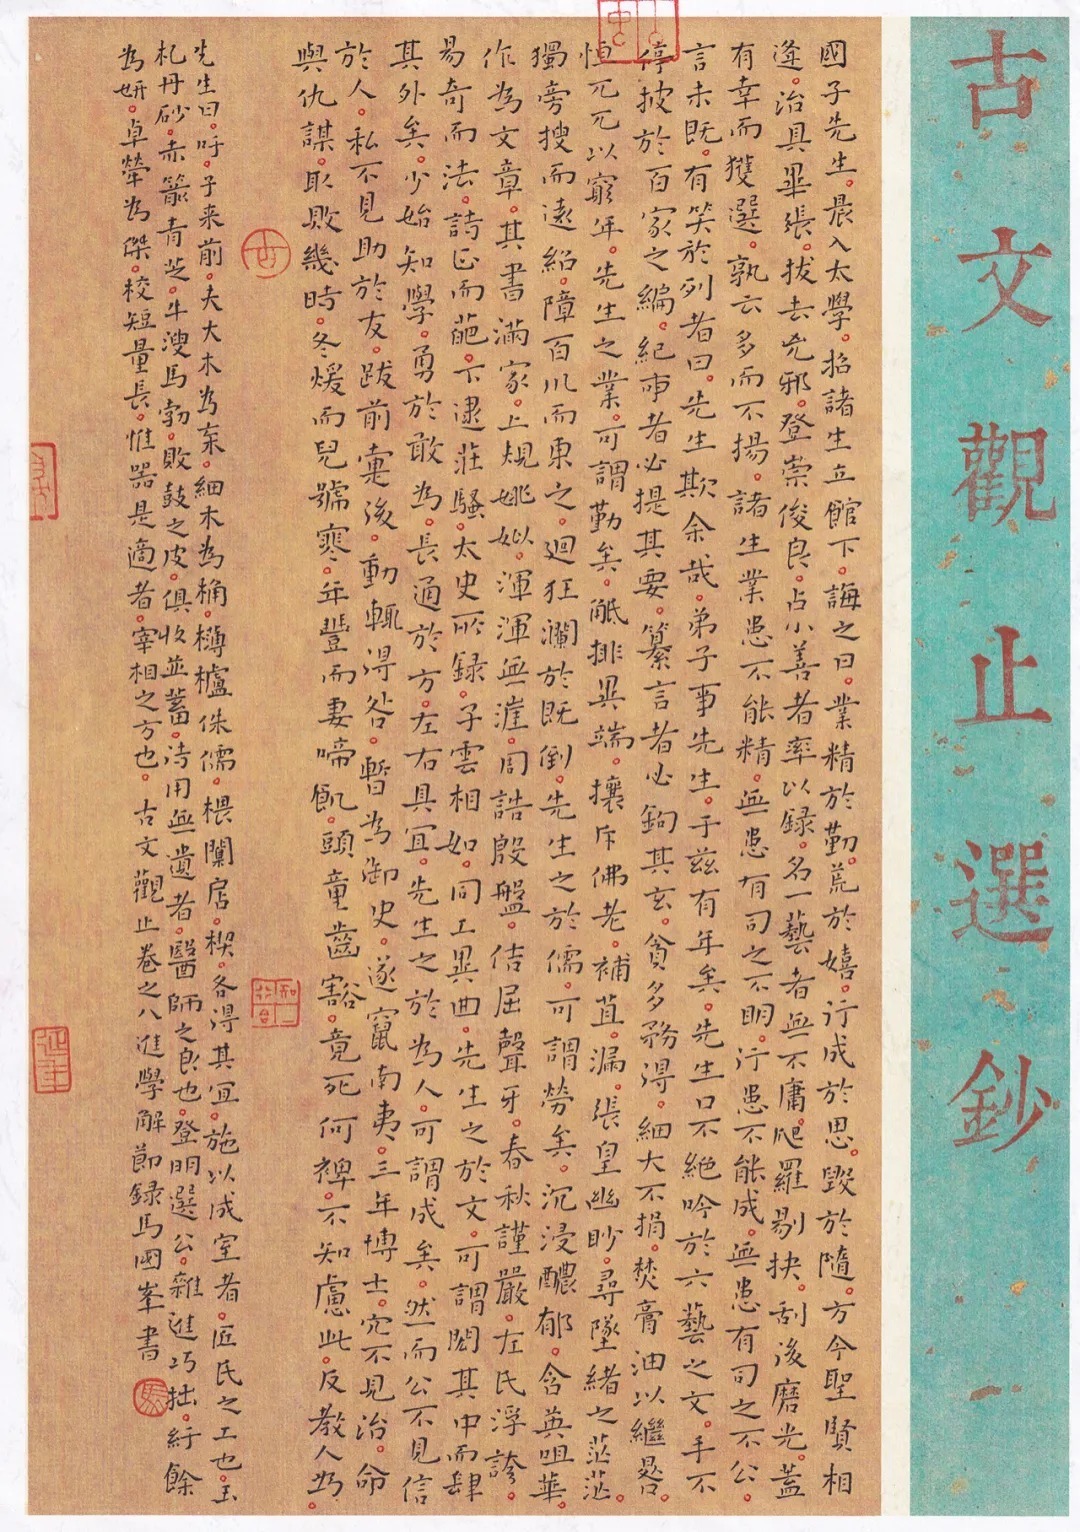 古文觀止選鈔 一
國子先生。晨入太學。招諸生立館下。誨之曰。業精於勤。荒於嬉。行成於思。毀於隨。方今聖賢相
逢。治具畢張。拔去兇邪。登崇俊良。占小善者率以錄。名一藝者無不庸。爬羅剔抉。刮垢磨光。蓋
有幸而獲選。孰云多而不揚。諸生業患不能精。無患有司之不明。行患不能成。無患有司之不公。
言未既。有笑於列者曰。先生欺余哉。弟子事先生。于茲有年矣。先生口不絕吟於六藝之文。手不
停披於百家之編。紀事者必提其要。纂言者必鉤其玄。貪多務得。細大不捐。焚膏油以繼晷。
恒兀兀以窮年。先生之業。可謂勤矣。觝排異端。攘斥佛老。補苴。漏。張皇幽眇。尋墜緒之茫茫。
獨旁搜而遠紹。障百川而東之。迴狂瀾於既倒。先生之於儒。可謂勞矣。沉浸醲郁。含英咀華。
作為文章。其書滿家。上規姚姒。渾渾無涯。周誥殷盤。佶屈聱牙。春秋謹嚴。左氏浮誇。
易奇而法。詩正而葩。下逮莊騷。太史所錄。子雲相如。同工異曲。先生之於文。可謂閎其中而肆
其外矣。少始知學。勇於敢為。長通於方。左右具宜。先生之於為人。可謂成矣。然而公不見信
於人。私不見助於友。跋前疐後。動輒得咎。暫為御史。遂竄南夷。三年博士。冗不見治。命
與仇謀。取敗幾時。冬煖而兒號寒。年豐而妻啼飢。頭童齒豁。竟死何裨。不知慮此。反教人為。
先生曰。吁。子来前。夫大木為杗。細木為桷。欂櫨侏儒。椳闑扂。楔。各得其宜。施以成室者。匠氏之工也。玉
札丹砂。赤箭青芝。牛溲馬勃。敗鼓之皮。俱收並蓄。待用無遺者。醫師之良也。登明選公。雜進巧拙。紆餘
為妍。卓犖為傑。校短量長。惟器是適者。宰相之方也。古文觀止卷之八進學解節錄馬國峯書